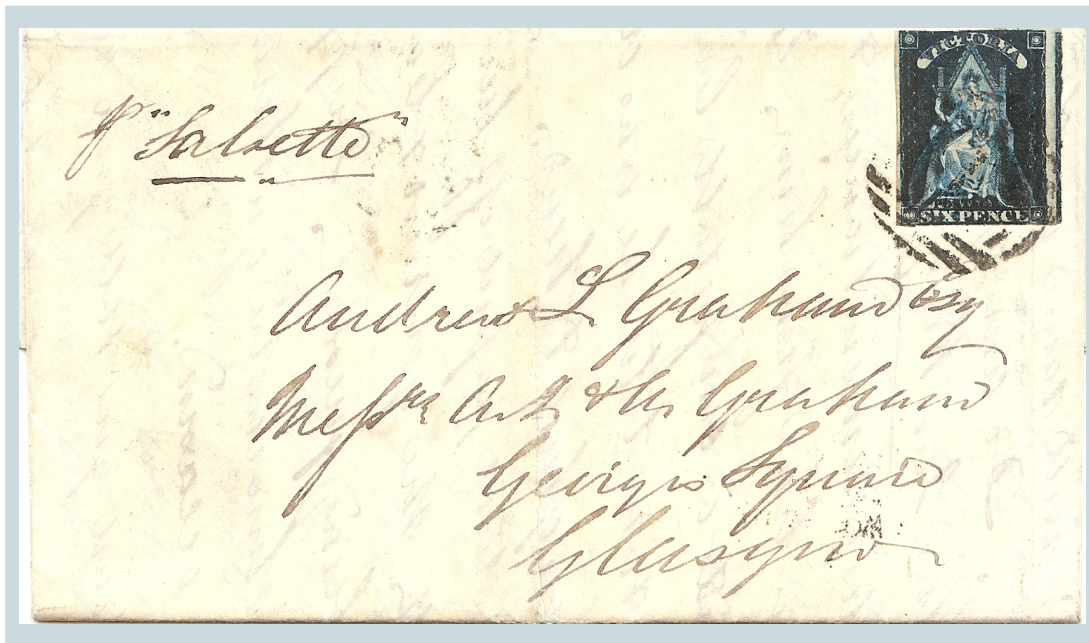 VICTORIA
SIX PENCE
p "Salsette"
Andrew L Graham Esq
Messrs A. L & Wm Graham
Georges Square
Glasgow